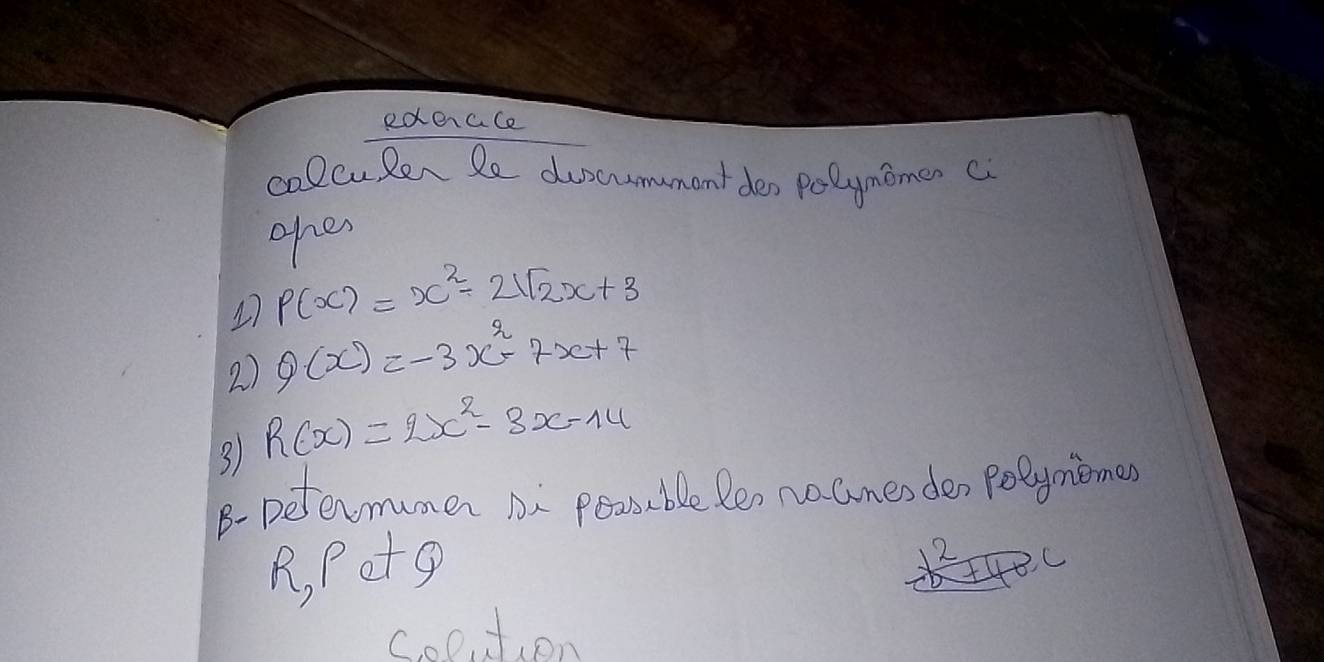 exercice
calculer le discriminant des polynômes ci
apres
1) P(x) = x² - 2√2x + 3
2) Q(x) = -3x² - 7x + 7
3) R(x) = 2x² - 3x - 14
B- Determiner si possible les racines des polynômes
R, P et Q
Solution